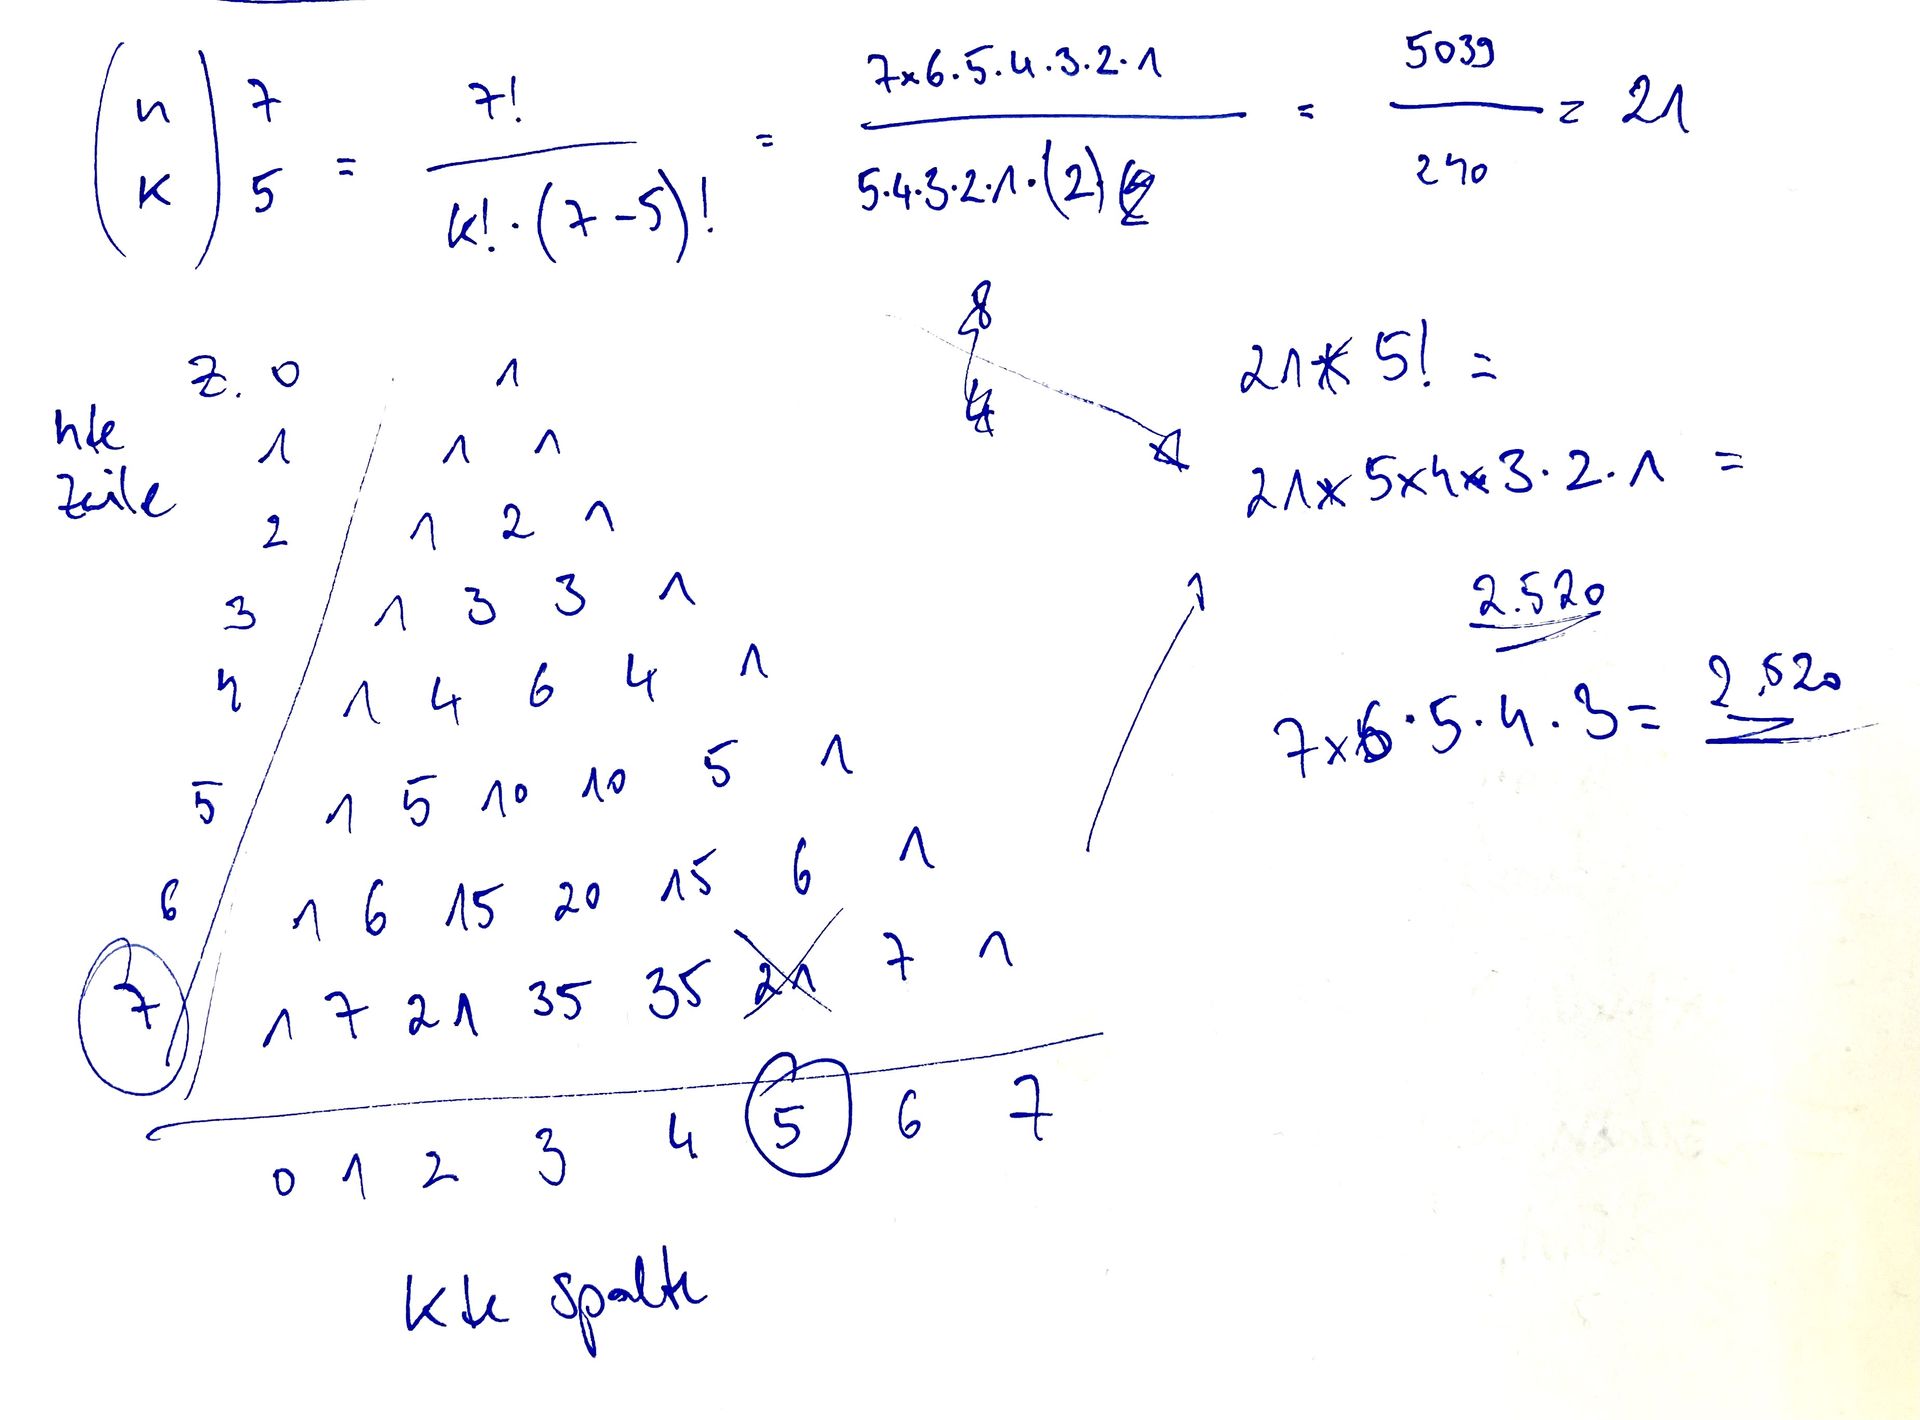 (n K) 7 5 = 7! / K! · (7-5)! = 7x6·5·4·3·2·1 / 5·4·3·2·1·(2) = 5039 / 240 = 21
Z. 0 1
nte Zeile
1 1 1
2 1 2 1
3 1 3 3 1
4 1 4 6 4 1
5 1 5 10 10 5 1
6 1 6 15 20 15 6 1
7 1 7 21 35 35 21 7 1
0 1 2 3 4 5 6 7
Kte Spalte
8
21* 5! =
21x5x4x3·2·1 =
2.520
7x6·5·4·3= 2.520